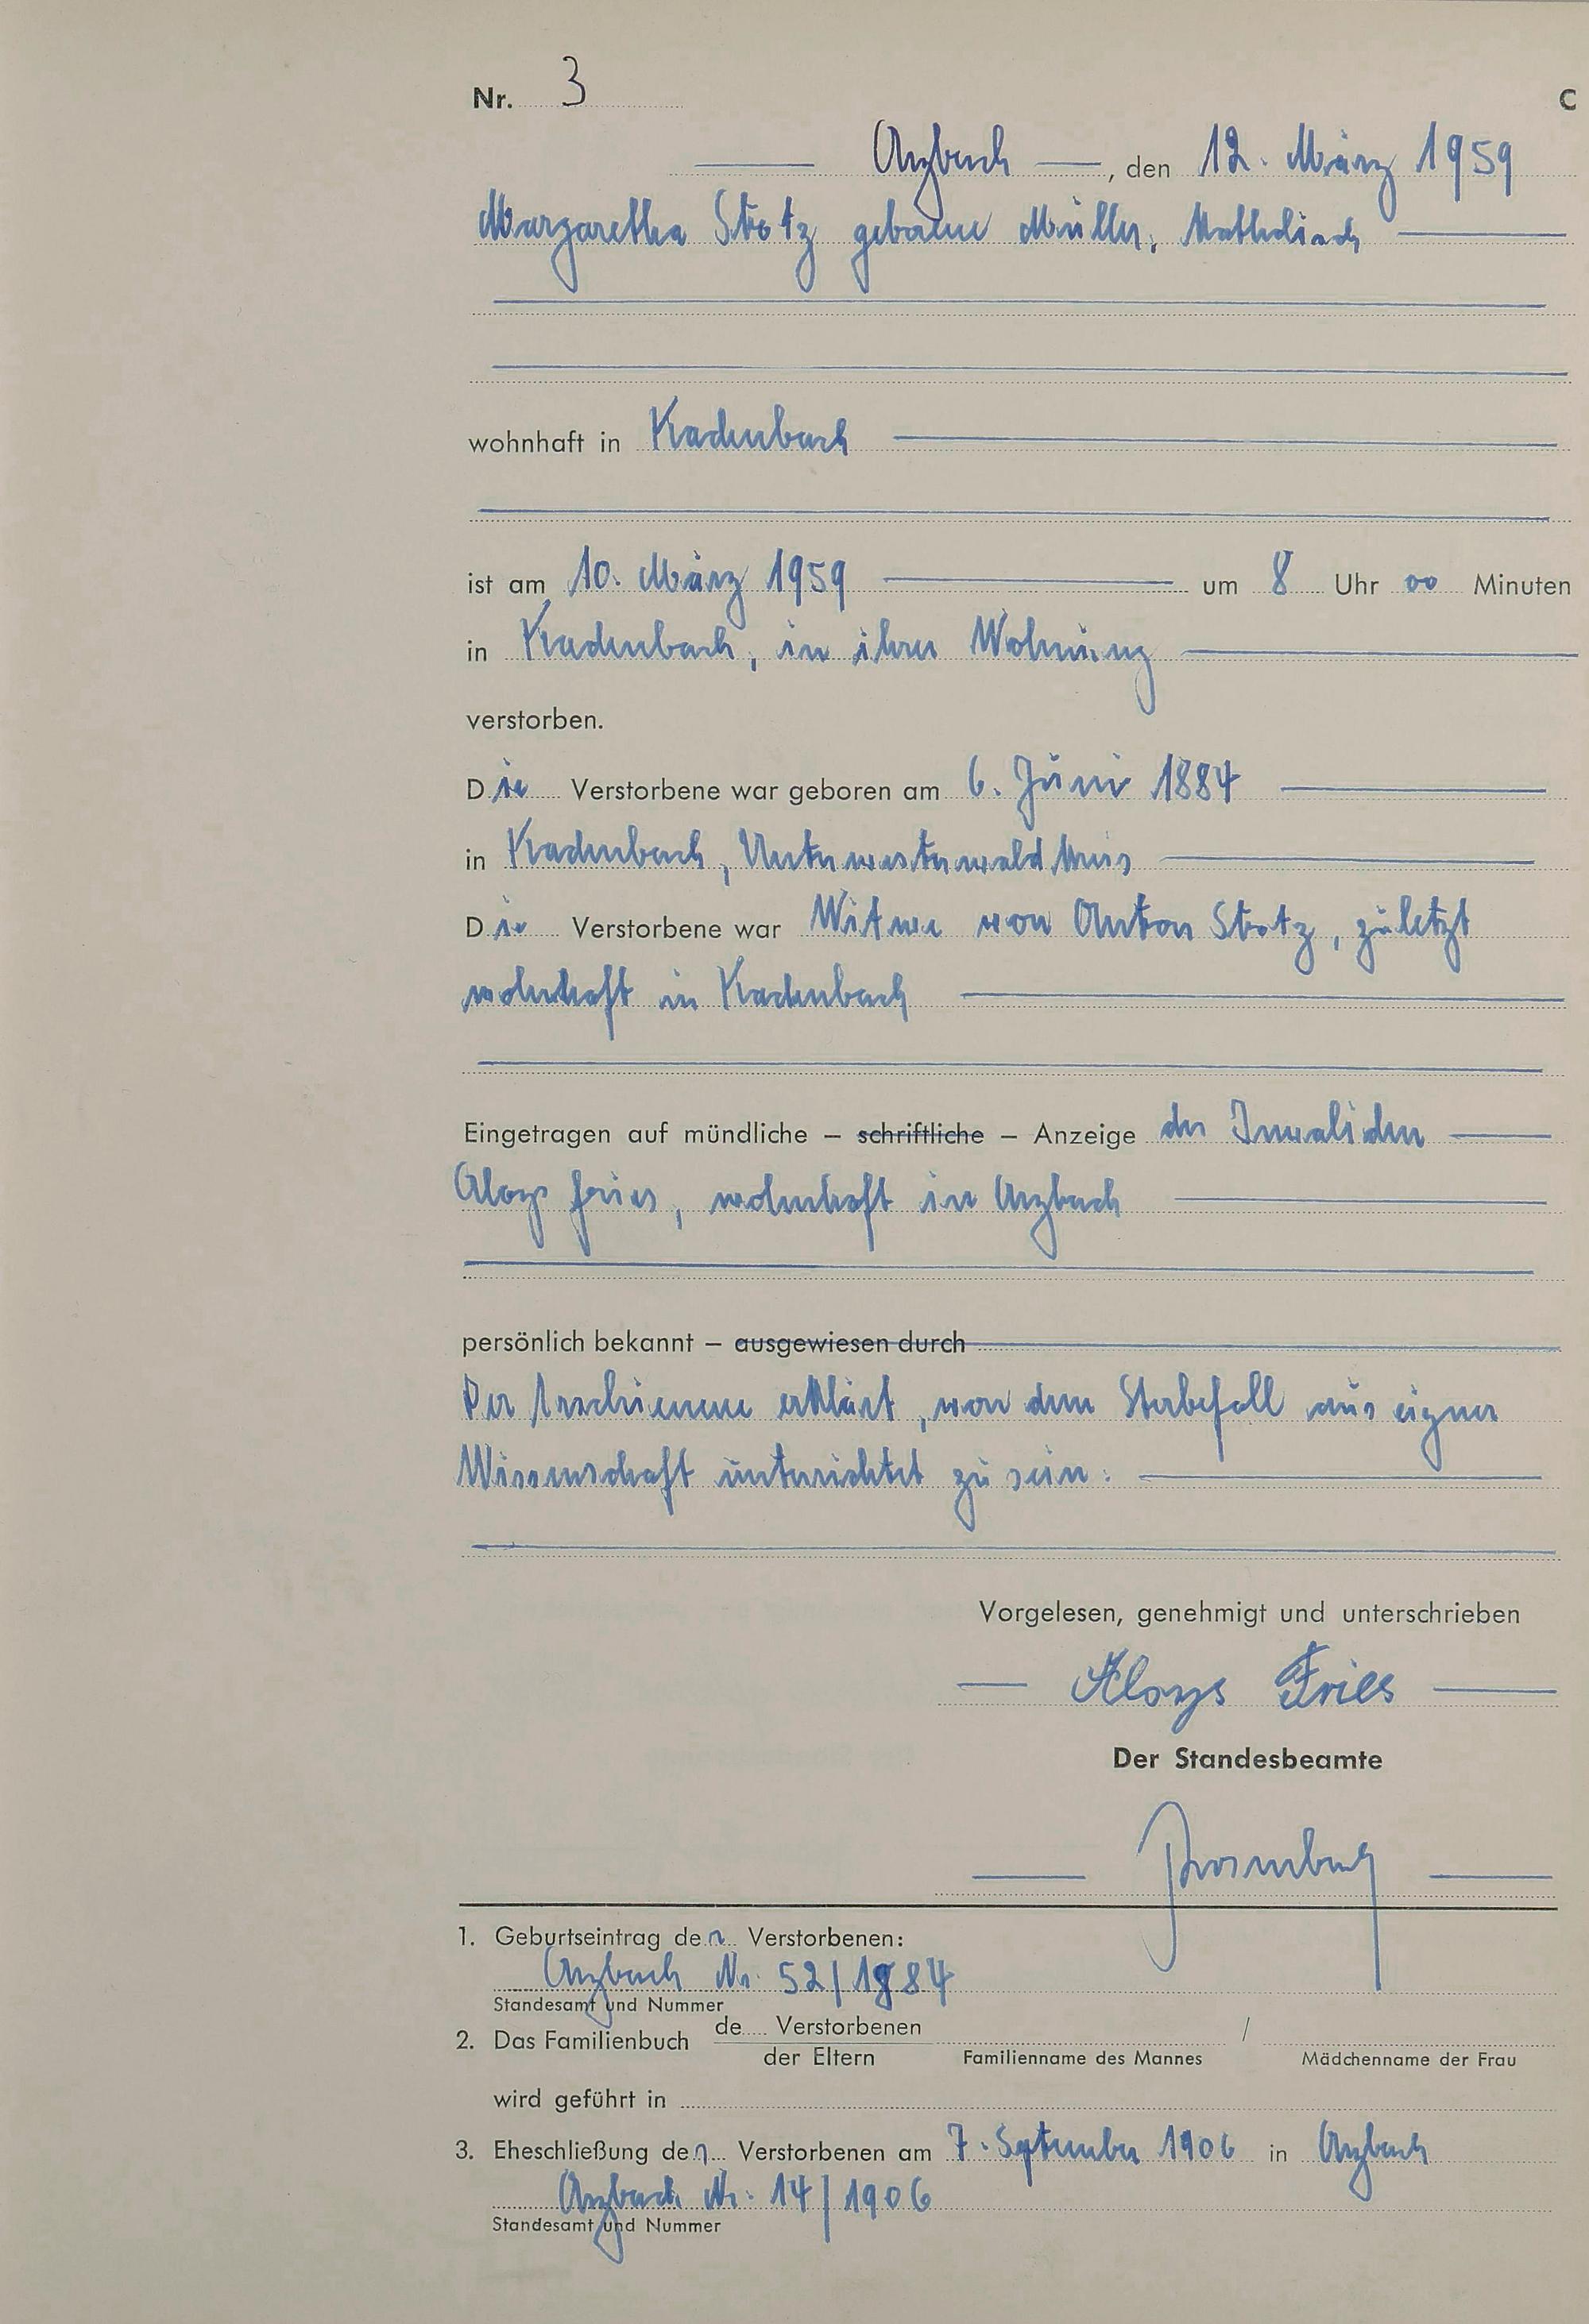 Nr. 3
C
Arzbach, den 12. März 1959
Margaretha Stotz geborene Müller, Katholisch
wohnhaft in Kadenbach
ist am 10. März 1959 um 8 Uhr 00 Minuten
in Kadenbach, in ihrer Wohnung
verstorben.
Die Verstorbene war geboren am 6. Juni 1884
in Kadenbach, Unterwesterwaldkreis
Die Verstorbene war Witwe von Anton Stotz, zuletzt
wohnhaft in Kadenbach
Eingetragen auf mündliche – schriftliche – Anzeige des Invaliden
Aloys Fries, wohnhaft in Arzbach
persönlich bekannt – ausgewiesen durch
Der Erschienene erklärt, von dem Sterbefall aus eigner
Wissenschaft unterrichtet zu sein.
Vorgelesen, genehmigt und unterschrieben
Aloys Fries
Der Standesbeamte
1. Geburtseintrag der Verstorbenen:
Arzbach Nr. 52/1884
Standesamt und Nummer
2. Das Familienbuch de Verstorbenen /
der Eltern Familienname des Mannes Mädchenname der Frau
wird geführt in
3. Eheschließung der Verstorbenen am 7. September 1906 in Arzbach
Arzbach Nr. 14/1906
Standesamt und Nummer